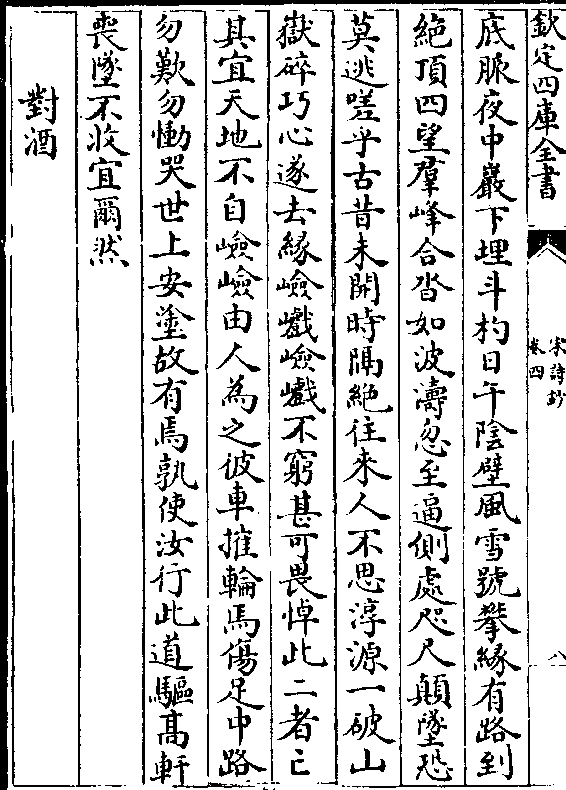 欽定四庫全書
宋詩鈔
卷四
八
底脈夜中巖下埋斗杓日午陰壁風雪號攀緣有路到
絶頂四望羣峰合沓如波濤忽至逼側處咫尺顛墜恐
莫逃嗟乎古昔未開時隔絶往來人不思淳源一破山
嶽碎巧心遂去緣嶮巇嶮巇不窮甚可畏悼此二者亡
其宜天地不自嶮嶮由人為之彼車摧輪馬傷足中路
勿歎勿慟哭世上安塗故有焉孰使汝行此道驅髙軒
喪墜不收宜爾然
對酒